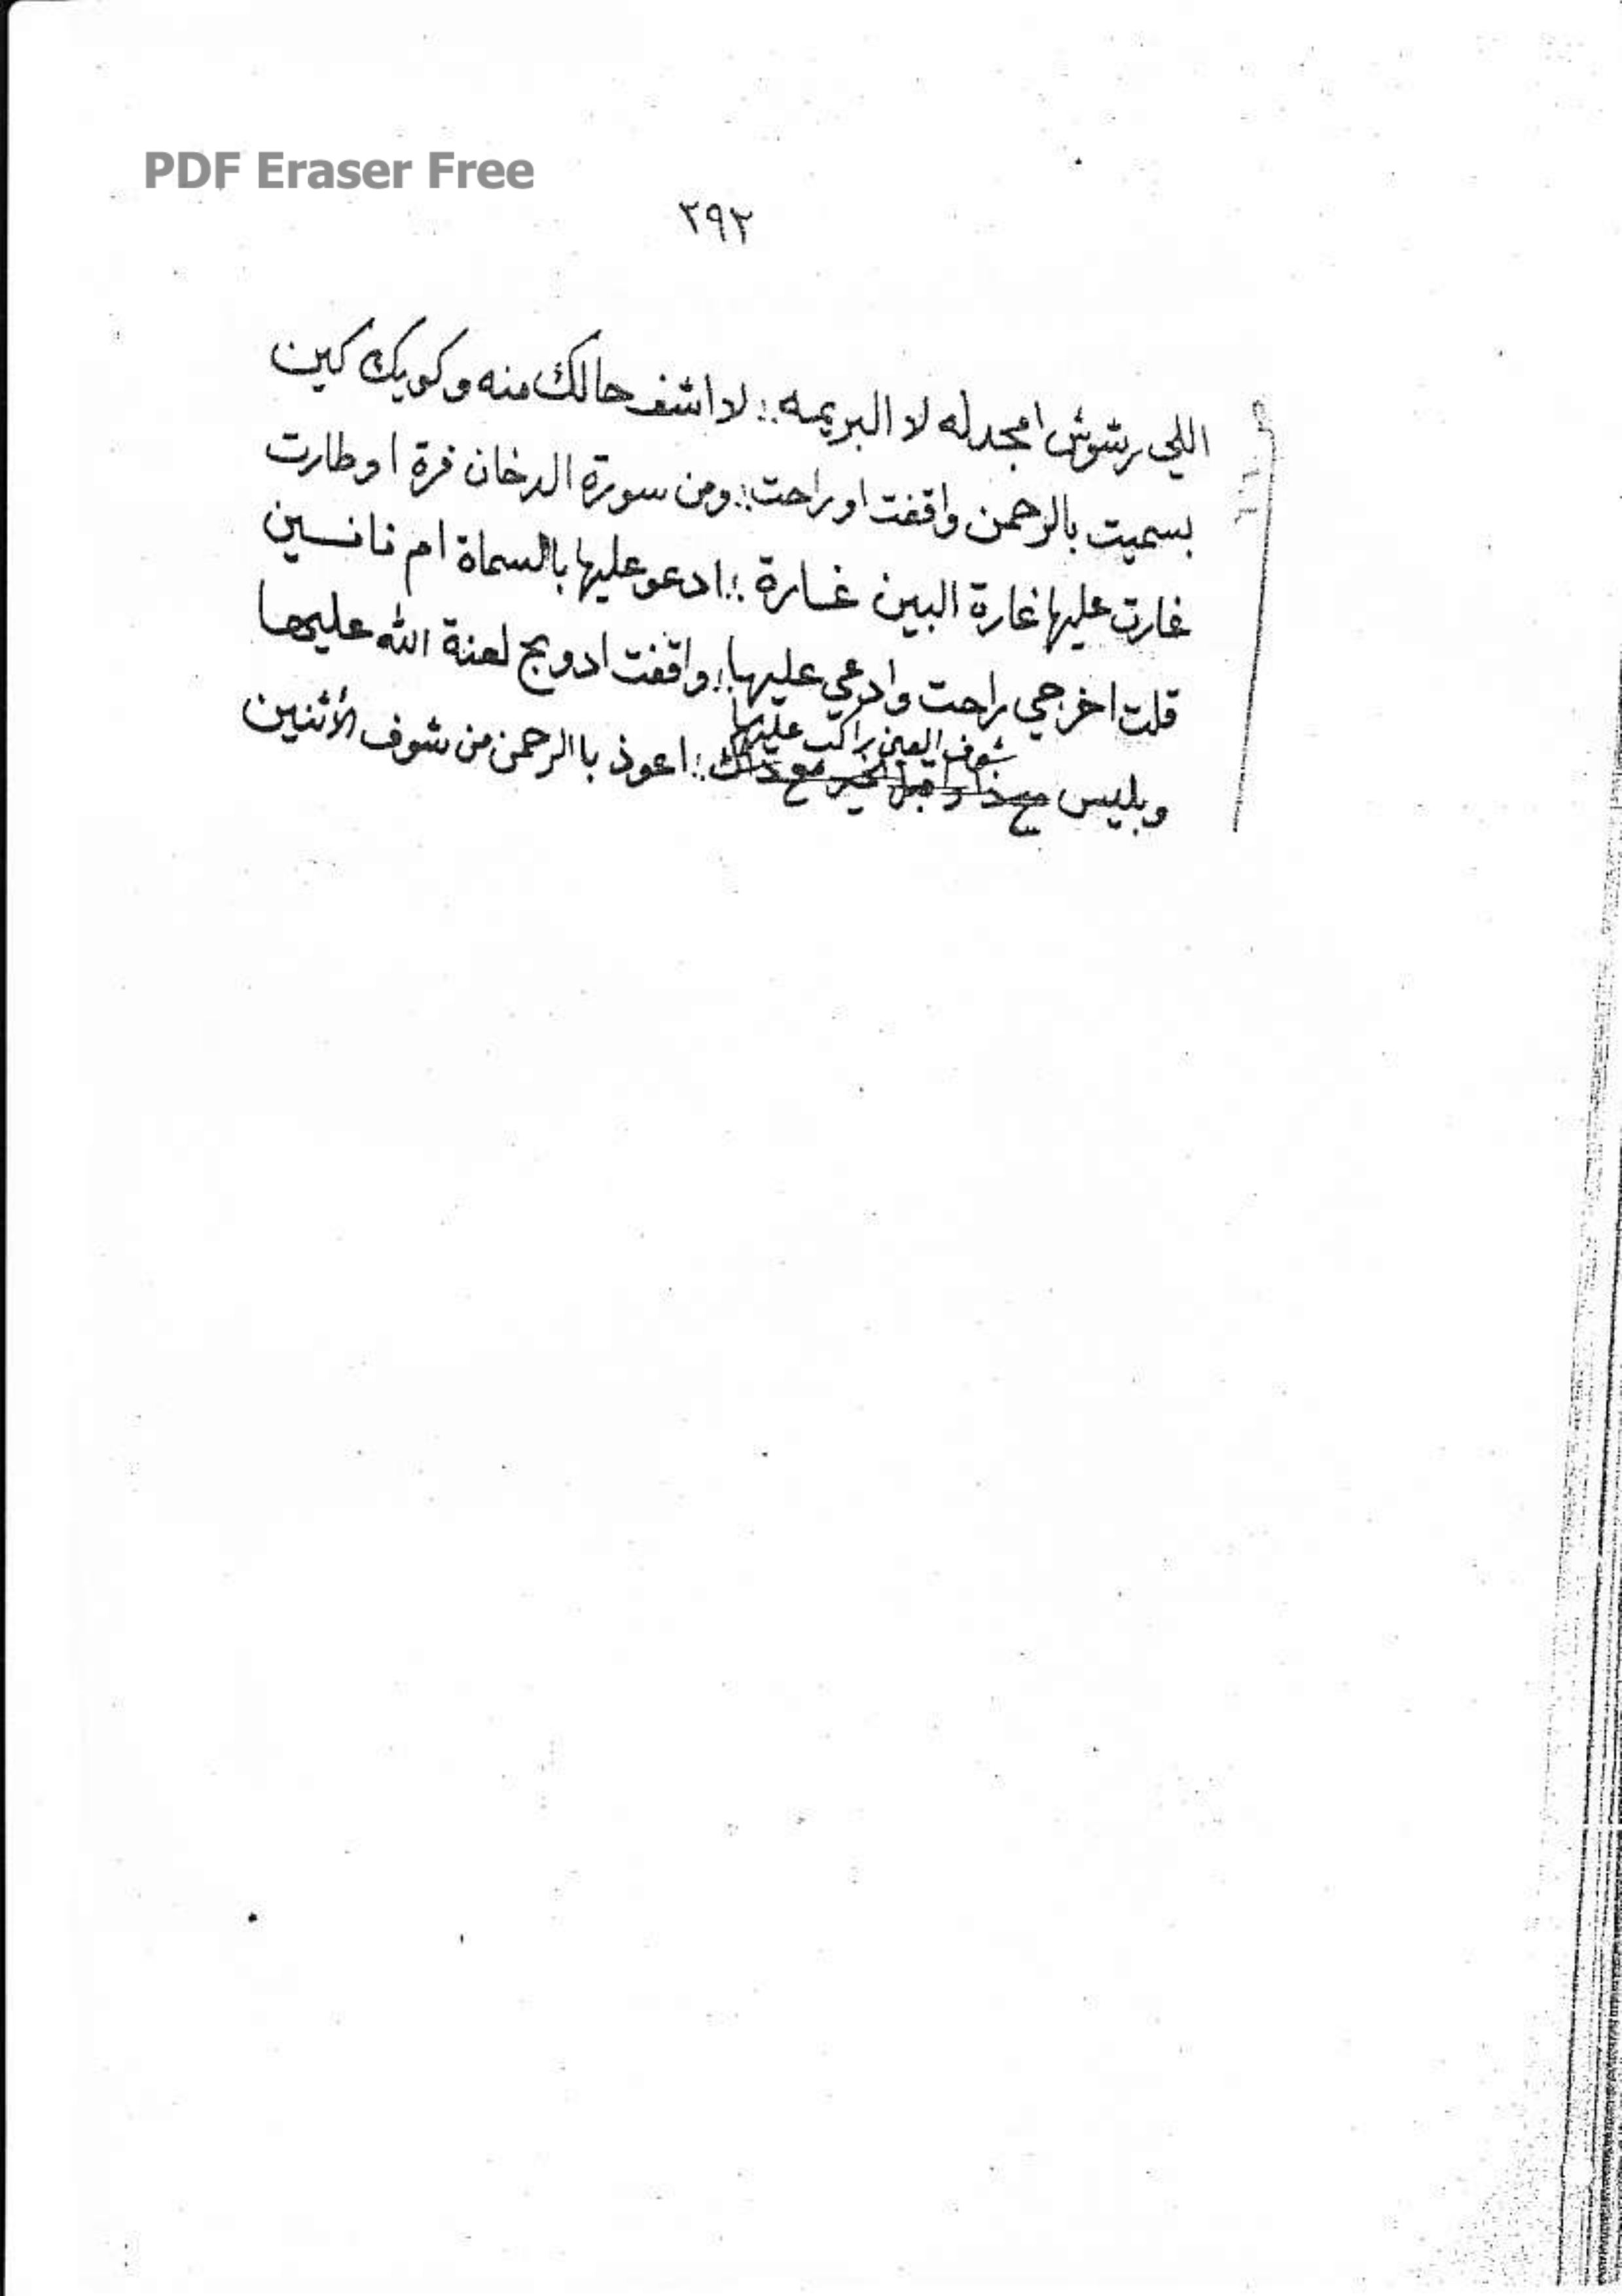 PDF Eraser Free
٢٩٢
اللي رشوش امجدله لا البريمه :: لا اشف حالك منه وكويك كين
بسميت بالرحمن واقفت او راحت :: ومن سورة الدخان فرة او طارت
غارت عليها غارة البين غارة :: ادعو عليها بالسماة ام نافسين
قلت اخرجي راحت وادعي عليها :: واقفت ادويج لعنة الله عليها
شوف العين راكب عليها
وبليس :: اعوذ با الرحمن من شوف الأثنين